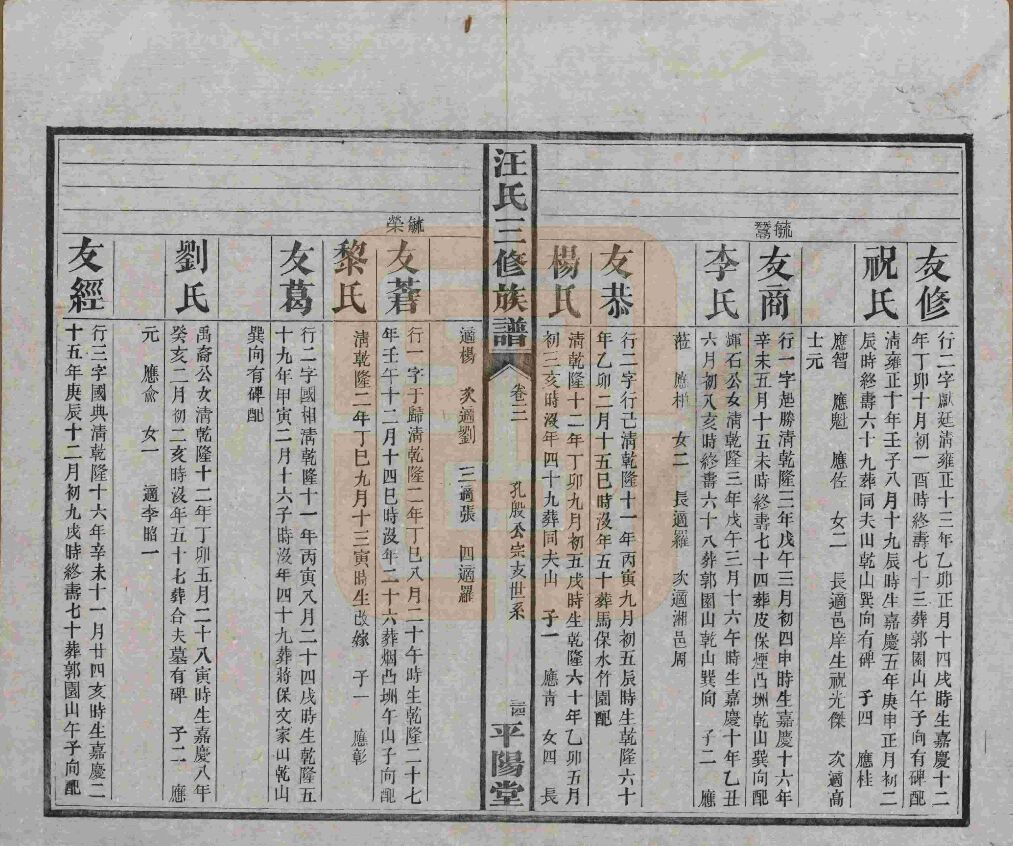 友修
行二字獻廷清雍正十三年乙卯正月十四戌時生嘉慶十二
年丁卯十月初一酉時終壽七十三葬郭園山午子向有碑配
祝氏
清雍正十年壬子八月十九辰時生嘉慶五年庚申正月初二
辰時終壽六十九葬同夫山乾山巽向有碑 子四 應桂
應智 應魁 應佐 女二 長適邑庠生祝光傑 次適高
士元
毓鸑
友商
行一字起勝清乾隆三年戊午三月初四申時生嘉慶十六年
辛未五月十五未時終壽七十四葬皮保煙凸洲乾山巽向配
李氏
輝石公女清乾隆三年戊午三月十六午時生嘉慶十年乙丑
六月初八亥時終壽六十八葬郭園山乾山巽向 子二 應
蒞 應 女二 長適羅 次適湘邑周
友恭
行二字行己清乾隆十一年丙寅九月初五辰時生乾隆六十
年乙卯二月十五巳時沒年五十葬馬保水竹園配
楊氏
清乾隆十二年丁卯九月初五戌時生乾隆六十年乙卯五月
初三亥時沒年四十九葬同夫山 子一 應靑 女四 長
汪氏三修族譜
卷三
孔殷公宗支世系
平陽堂
適楊 次適劉 三適張 四適羅
毓榮
友蒼
行一字于歸清乾隆二年丁巳八月二十午時生乾隆二十七
年壬午十二月十四巳時沒年二十六葬烟凸洲午山子向配
黎氏
清乾隆二年丁巳九月十三寅時生改嫁 子一 應彰
友葛
行二字國相清乾隆十一年丙寅八月二十四戌時生乾隆五
十九年甲寅二月十六子時沒年四十九葬將保文家山乾山
巽向有碑配
劉氏
禹裔公女清乾隆十二年丁卯五月二十八寅時生嘉慶八年
癸亥二月初二亥時沒年五十七葬合夫墓有碑 子二 應
元 應兪 女一 適李昭一
友經
行三字國典清乾隆十六年辛未十一月廿四亥時生嘉慶二
十五年庚辰十二月初九戌時終壽七十葬郭園山午子向配